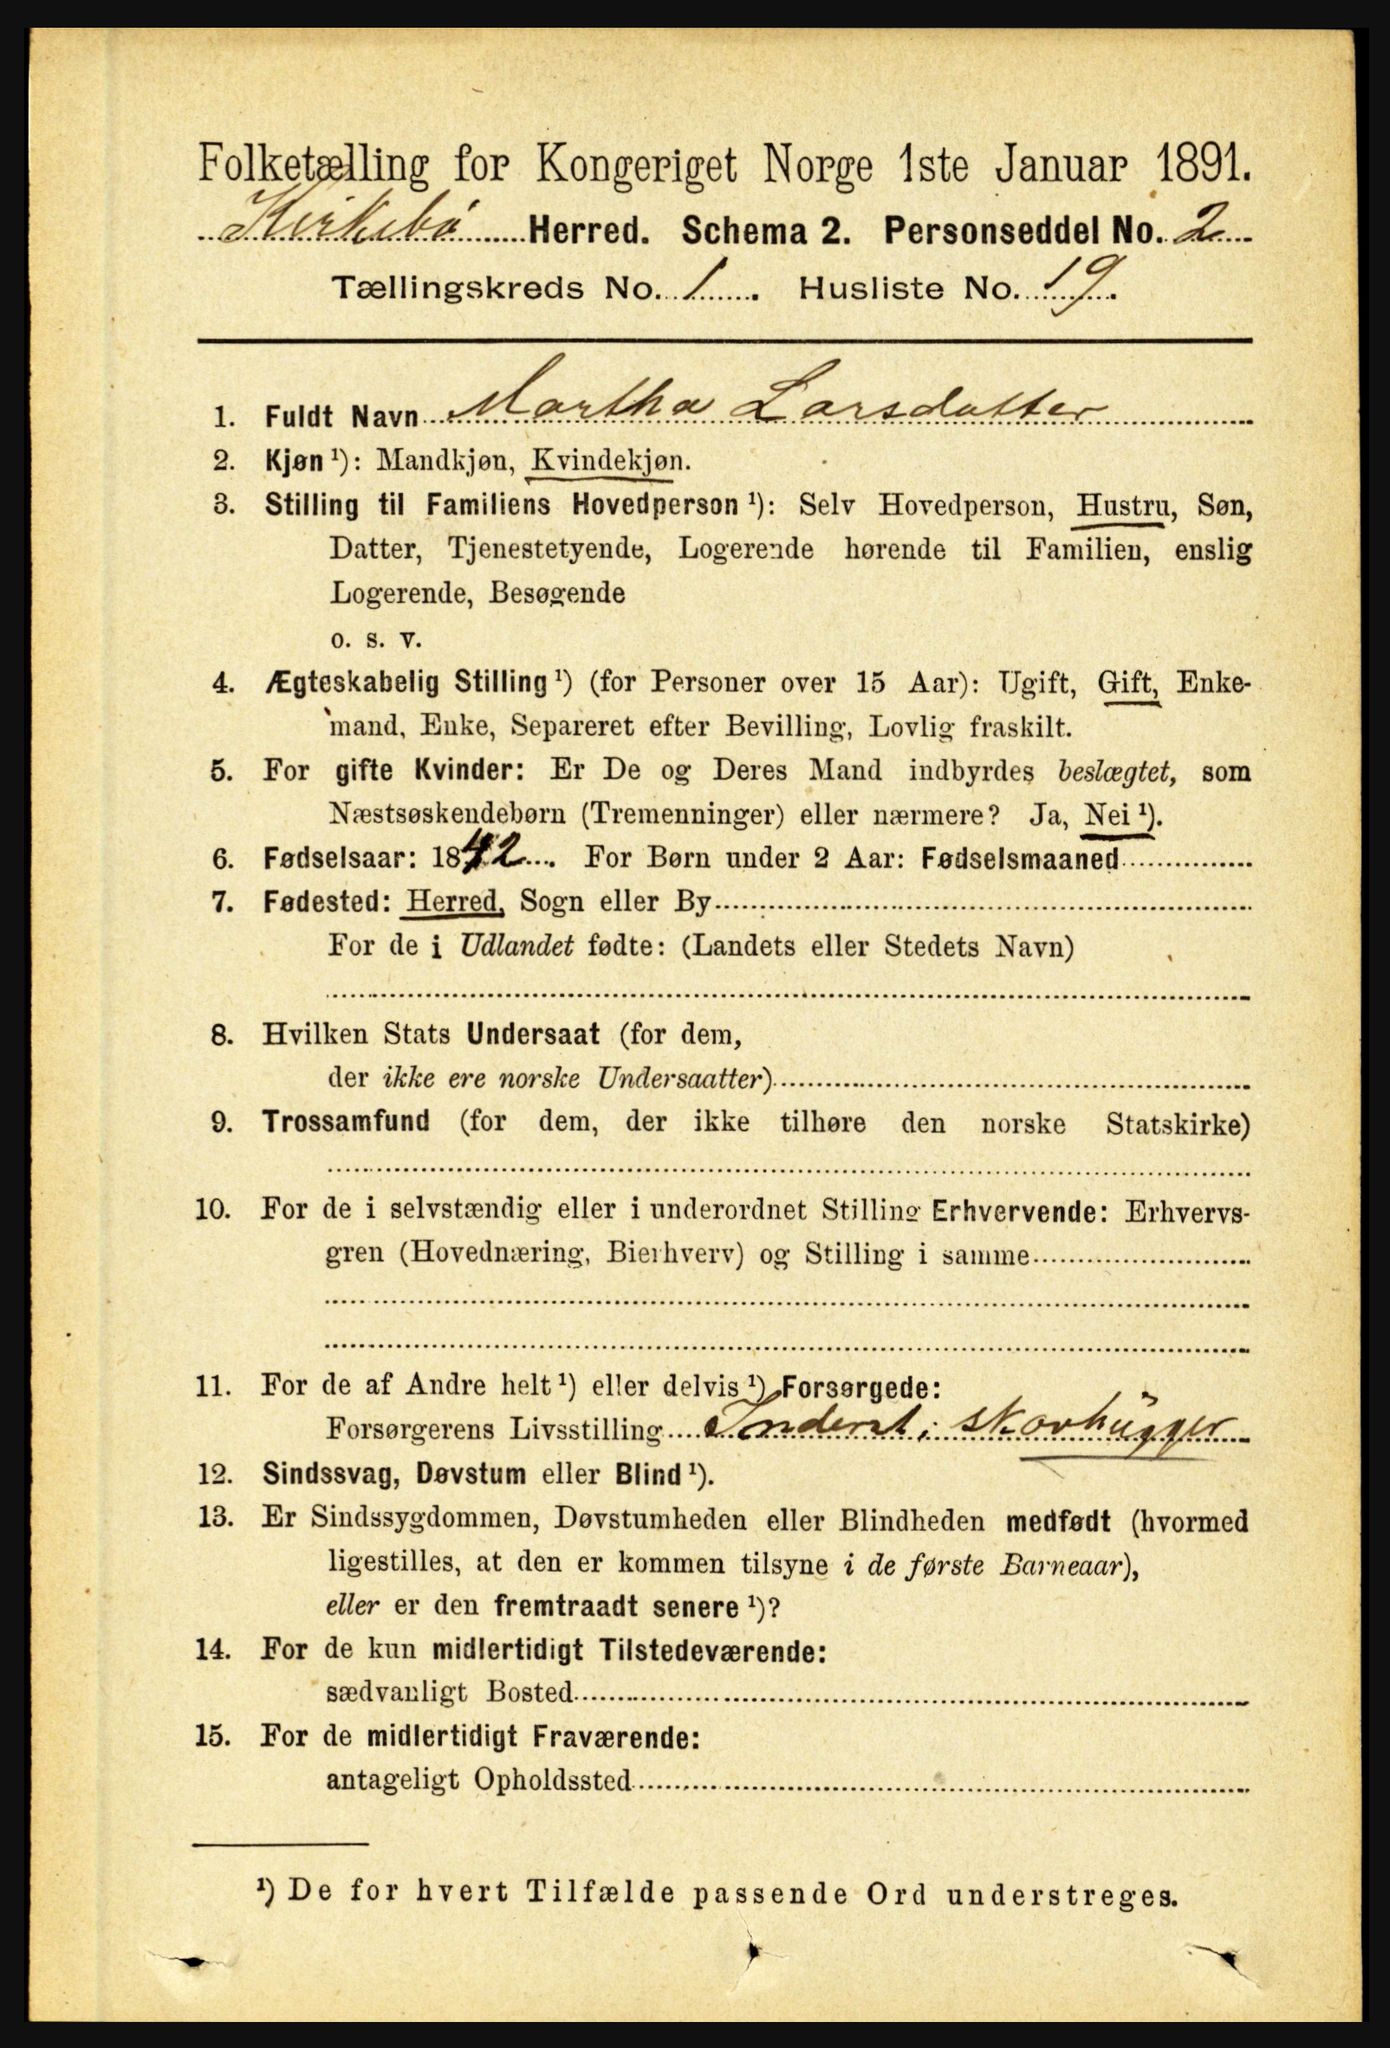 Folketælling for Kongeriget Norge 1ste Januar 1891.
Kirkebø Herred. Schema 2. Personseddel No. 2
Tællingskreds No. 1. Husliste No. 19.
1. Fuldt Navn Martha Larsdatter
2. Kjøn ¹): Mandkjøn, Kvindekjøn.
3. Stilling til Familiens Hovedperson ¹): Selv Hovedperson, Hustru, Søn,
Datter, Tjenestetyende, Logerende hørende til Familien, enslig
Logerende, Besøgende
o. s. v.
4. Ægteskabelig Stilling ¹) (for Personer over 15 Aar): Ugift, Gift, Enke-
mand, Enke, Separeret efter Bevilling, Lovlig fraskilt.
5. For gifte Kvinder: Er De og Deres Mand indbyrdes beslægtet, som
Næstsøskendebørn (Tremenninger) eller nærmere? Ja, Nei ¹).
6. Fødselsaar: 1842. For Børn under 2 Aar: Fødselsmaaned
7. Fødested: Herred, Sogn eller By
For de i Udlandet fødte: (Landets eller Stedets Navn)
8. Hvilken Stats Undersaat (for dem,
der ikke ere norske Undersaatter)
9. Trossamfund (for dem, der ikke tilhøre den norske Statskirke)
10. For de i selvstændig eller i underordnet Stilling Erhvervende: Erhvervs-
gren (Hovednæring, Bierhverv) og Stilling i samme
11. For de af Andre helt ¹) eller delvis ¹) Forsørgede:
Forsørgerens Livsstilling Inderst, skovhugger
12. Sindssvag, Døvstum eller Blind ¹).
13. Er Sindssygdommen, Døvstumheden eller Blindheden medfødt (hvormed
ligestilles, at den er kommen tilsyne i de første Barneaar),
eller er den fremtraadt senere ¹)?
14. For de kun midlertidigt Tilstedeværende:
sædvanligt Bosted
15. For de midlertidigt Fraværende:
antageligt Opholdssted
¹) De for hvert Tilfælde passende Ord understreges.